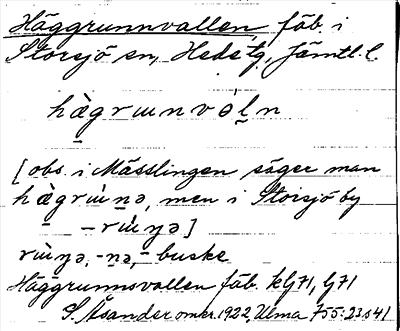 Häggrunnvallen, fäb. i
Storsjö sn, Heds tg, Jämtl. l.
hägrɯnvóḷn
[obs. i Mässlingen säger man
hägrɯ́n̠ə, men i Storsjö by
– – rɯ́ŋə]
rɯŋə, -n̠ə, – buske
Häggrunnsvallen fäb. kLJ71, LJ71
S. Åsander omkr. 1922, Ulma 755:23 s 41